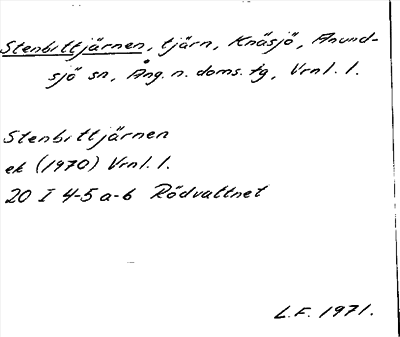 Stenbittjärnen, tjärn, Knäsjö, Anund-
sjö sn, Ång. n. doms. tg, Vrnl. l.
Stenbittjärnen
ek (1970) Vrnl. l.
20 I 4-5 a-b Rödvattnet
L.F. 1971.